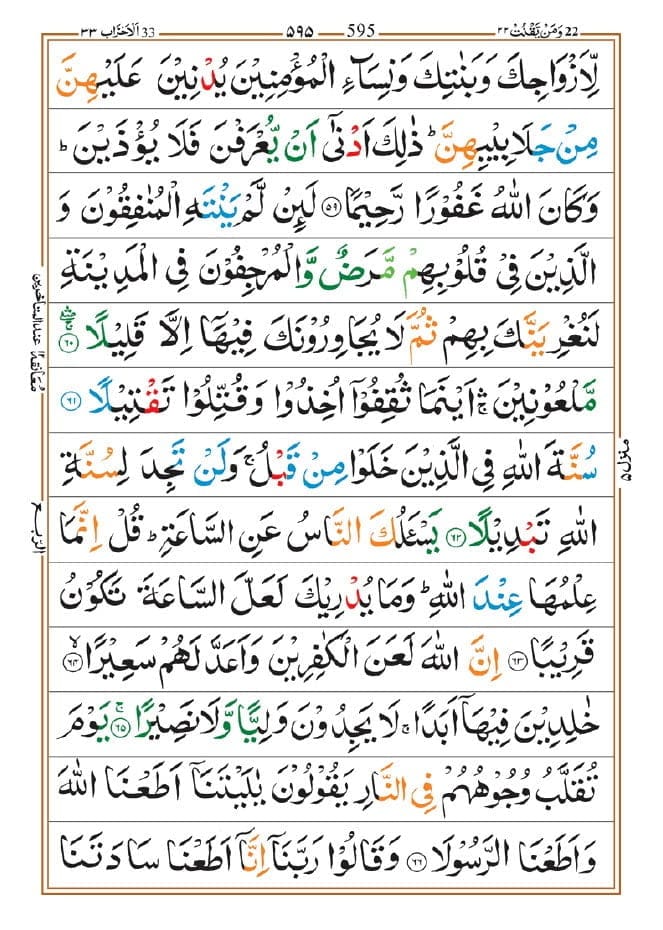 22 وَمَنْ يَّقْنُتْ ٢٢ 595 ٥٩٥ 33 اَلْاَحْزَاب ٣٣
لِّاَزْوَاجِكَ وَبَنٰتِكَ وَنِسَآءِ الْمُؤْمِنِيْنَ يُدْنِيْنَ عَلَيْهِنَّ
مِنْ جَلَابِيْبِهِنَّ ؕ ذٰلِكَ اَدْنٰۤى اَنْ يُّعْرَفْنَ فَلَا يُؤْذَيْنَ ؕ
وَكَانَ اللّٰهُ غَفُوْرًا رَّحِيْمًا ﴿۵۹﴾ لَئِنْ لَّمْ يَنْتَهِ الْمُنٰفِقُوْنَ وَ
الَّذِيْنَ فِيْ قُلُوْبِهِمْ مَّرَضٌ وَّالْمُرْجِفُوْنَ فِي الْمَدِيْنَةِ
لَنُغْرِيَنَّكَ بِهِمْ ثُمَّ لَا يُجَاوِرُوْنَكَ فِيْهَاۤ اِلَّا قَلِيْلًا ﴿۶۰﴾
مَّلْعُوْنِيْنَ ۛۚ اَيْنَمَا ثُقِفُوْۤا اُخِذُوْا وَقُتِّلُوْا تَقْتِيْلًا ﴿۶۱﴾
سُنَّةَ اللّٰهِ فِي الَّذِيْنَ خَلَوْا مِنْ قَبْلُ ۚ وَلَنْ تَجِدَ لِسُنَّةِ
اللّٰهِ تَبْدِيْلًا ﴿۶۲﴾ يَسْـَٔلُكَ النَّاسُ عَنِ السَّاعَةِ ؕ قُلْ اِنَّمَا
عِلْمُهَا عِنْدَ اللّٰهِ ؕ وَمَا يُدْرِيْكَ لَعَلَّ السَّاعَةَ تَكُوْنُ
قَرِيْبًا ﴿۶۳﴾ اِنَّ اللّٰهَ لَعَنَ الْكٰفِرِيْنَ وَاَعَدَّ لَهُمْ سَعِيْرًا ﴿۶۴﴾ۙ
خٰلِدِيْنَ فِيْهَاۤ اَبَدًا ۚ لَا يَجِدُوْنَ وَلِيًّا وَّلَا نَصِيْرًا ﴿۶۵﴾ۚ يَوْمَ
تُقَلَّبُ وُجُوْهُهُمْ فِي النَّارِ يَقُوْلُوْنَ يٰلَيْتَنَاۤ اَطَعْنَا اللّٰهَ
وَاَطَعْنَا الرَّسُوْلَا ﴿۶۶﴾ وَقَالُوْا رَبَّنَاۤ اِنَّاۤ اَطَعْنَا سَادَتَنَا
مُعَانَقَة ١٢ عند المتأخرین
الرّبع
منزل ۵